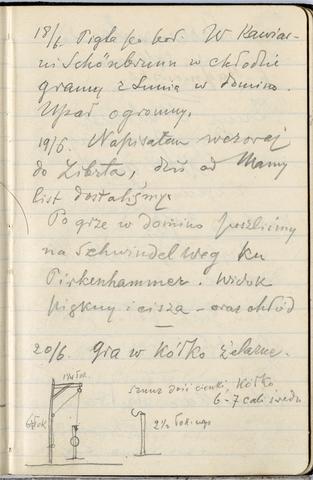 18/6. Pigła po poł. W Kawiar-
ni Schönbrunn w chłodzie
gramy z Lunią w domino.
Upał ogromny.
19/6. Napisałam wczoraj
do Librta, dziś od Mamy
list dostaliśmy.
Po grze w domino poszliśmy
na Schwindel Weg ku
Pirkenhammer. Widok
piękny i cisza - oraz chłód
20/6. Gra w Kółko żelazne.
łok.
sznur dość cienki, Kółko
6-7 cali średn
6 łok
2½ łok.